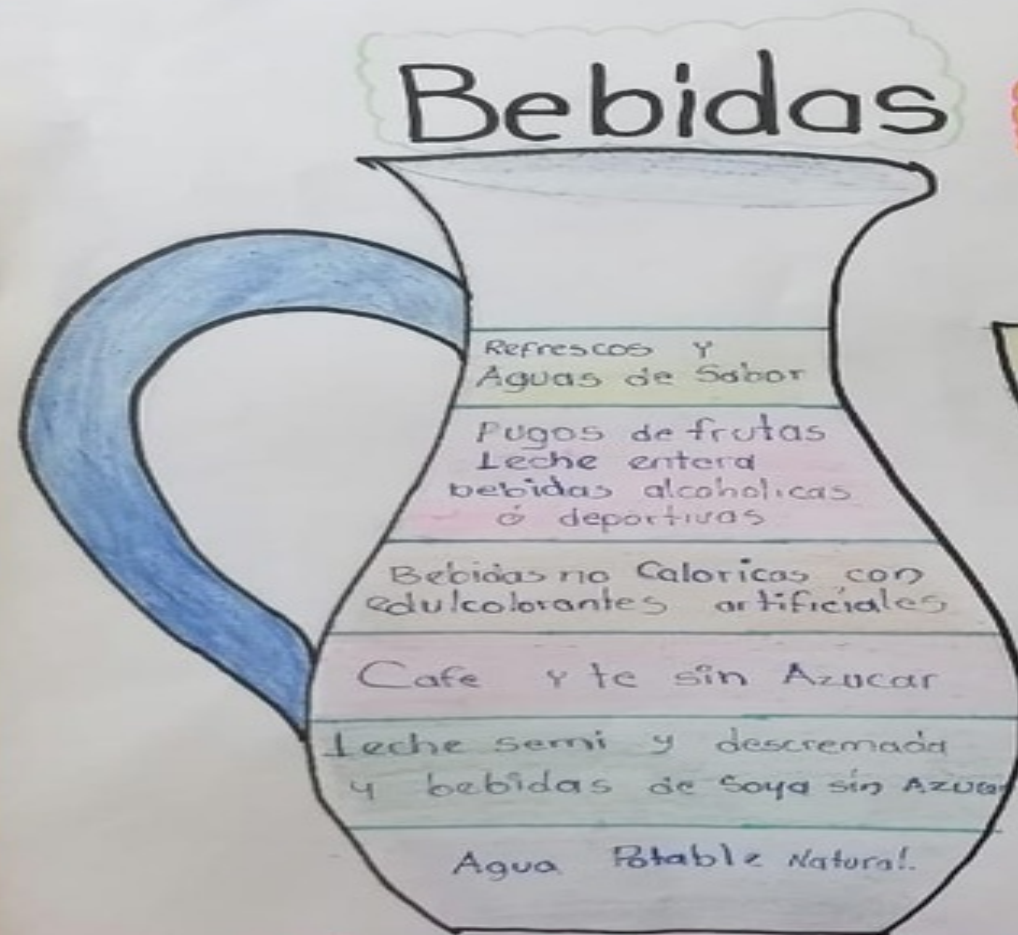 Bebidas
Refrescos y
Aguas de Sabor
Pugos de frutas
Leche entera
bebidas alcoholicas
ó deportivas
Bebidas no Caloricas con
edulcolorantes artificiales
Cafe y te sin Azucar
Leche semi y descremada
y bebidas de Soya sin Azucar
Agua Potable Natural.